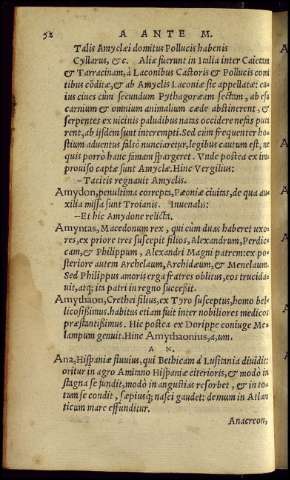 52 A ANTE M.
Talis Amyclæi domitus Pollucis habenis
Cyllarus, &c. Aliæ fuerunt in Italia inter Caietam
& Tarracinam, à Laconibus Castoris & Pollucis comi
tibus cōditæ, & ab Amyclis Laconiæ sic appellatæ: cu
ius ciues cùm secundum Pythagoræam sectam, ab esu
carnium & omnium animalium cæde abstinerent, &
serpentes ex uicinis paludibus natos occidere nefas puta
rent, ab ijsdem sunt interempti. Sed cùm frequenter ho
stium aduentus falsò nunciaretur, legibus cautum est, ne
quis porrò hanc famam spargeret. Vnde postea ex im
prouiso captæ sunt Amyclæ. Hinc Vergilius:
—Tacitis regnauit Amyclis.
Amydon, penultima correpta, Pæoniæ ciuitas, de qua au
xilia missa sunt Troianis. Iuuenalis:
—Et hic Amydone relicta.
Amyntas, Macedonum rex, qui cùm duas haberet uxo
res, ex priore tres suscepit filios, Alexandrum, Perdic
cam, & Philippum, Alexandri Magni patrem: ex po
steriore autem Archelaum, Archidæum, & Menelaum.
Sed Philippus amoris erga fratres oblitus, eos trucida
uit, atq; ita patri in regno successit.
Amythaon, Crethei filius, ex Tyro susceptus, homo bel
licosissimus. habitus etiam fuit inter nobiliores medicos
præstantissimus. Hic postea ex Dorippe coniuge Me
lampum genuit. Hinc Amythaonius, a, um.
A N.
Ana, Hispaniæ fluuius, qui Bethicam à Lusitania diuidit:
oritur in agro Aminno Hispaniæ citerioris, & modò in
stagna se fundit, modò in angustias resorbet, & in to
tum se condit, sæpiusq; nasci gaudet: demum in Atlan
ticum mare effunditur.
Anacreon,